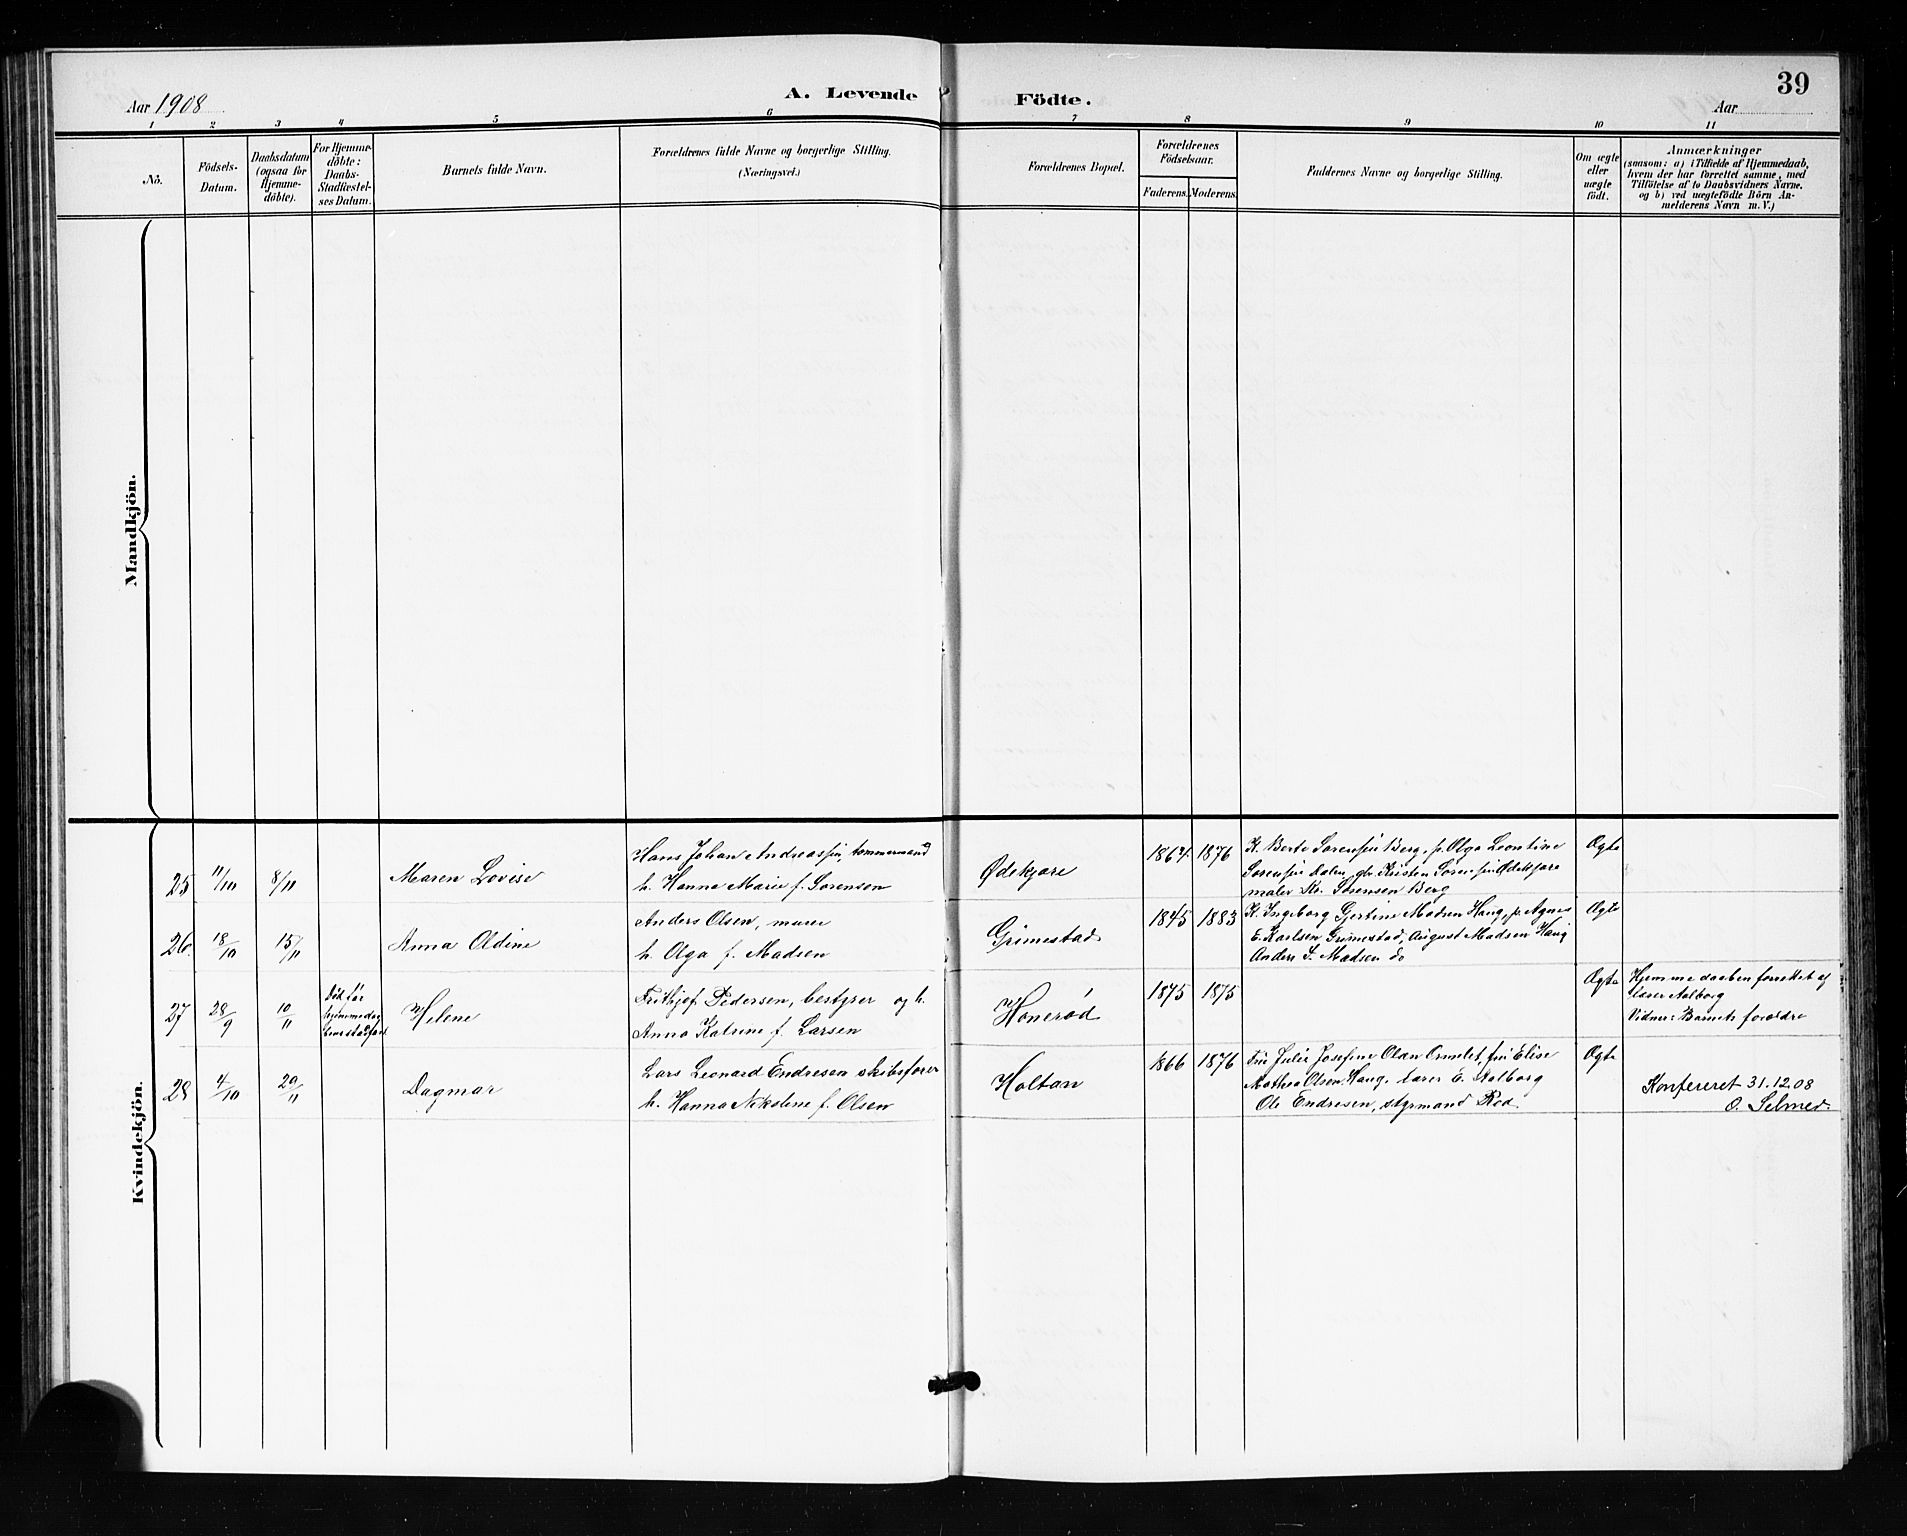 39
Aar 1908
A. Levende
Födte.
Aar
1 2 3 4 5 6 7 8 9 10 11
No.
Födsels-
Datum.
Daabsdatum
(ogsaa for
Hjemme-
döbte).
For Hjemme-
döbte:
Daabs-
Stadfæstel-
ses Datum.
Barnets fulde Navn.
Forældrenes fulde Navne og borgerlige Stilling.
(Næringsvei.)
Forældrenes Bopæl.
Forældrenes
Födselsaar.
Faderens. Moderens.
Faddernes Navne og borgerlige Stilling.
Om ægte
eller
uægte
födt.
Anmærkninger
(saasom: a) i Tilfælde af Hjemmedaab,
hvem der har forrettet samme, med
Tilföielse af to Daabsvidners Navne,
og b) ved uægtefödte Börn An-
melderens Navn m. V.)
Mandkjön.
Kvindekjön.
25 11/10 8/11
Maren Lovise
Hans Johan Andreassen tømmermand
h. Hanna Marie f. Sørensen
Ødekjære
1864. 1876
K. Berte Sørensen Berg, p. Olga Leontine
Sørensen Dalen, gbr. Kristen Sørensen Ødekjære
maler Kr. Sørensen Berg
Ægte
26. 18/10 15/11
Anna Oldine
Anders Olsen, murer
h. Olga f. Madsen
Grimestad
1845 1883
K. Ingeborg Gjertine Madsen Haug, p. Agnes
E. Karlsen Grimestad, August Madsen Haug
Anders S. Madsen do
Ægte
27 28/9 10/11
Død før
Helene
Frithjof Pedersen, bestyrer og h.
Anna Katrine f. Larsen
Hønerød
1875 1875
Ægte
Hjemmedaaben forrettet af
lærer Aalborg
Vidner: Barnets forældre
28 4/10 29/11
Dagmar
Lars Leonard Endresen skibsfører
h. Hanna Nikoline f. Olsen
Holtan
1866 1876
Fru Julie Josefine Olsen Ormlet, fru Elise
Mathea Olsen Haug, lærer E. Aalborg
Ole Endresen, styrmand Rød.
Ægte
Konfereret 31.12.08
O. Selmer.